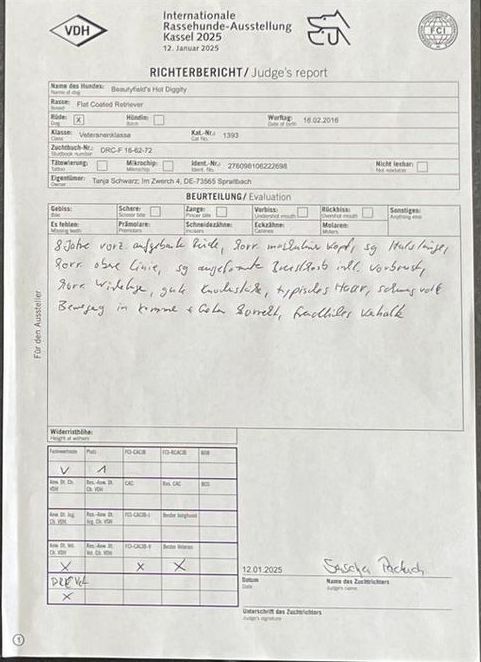 VDH
Internationale
Rassehunde-Ausstellung
Kassel 2025
12. Januar 2025
FCI
RICHTERBERICHT / Judge's report
Name des Hundes: Beautyfield's Hot Diggity
Name of dog
Rasse: Flat Coated Retriever
Breed
Rüde: X Hündin: Wurftag: 16.02.2016
Dog Bitch Date of birth
Klasse: Veteranenklasse Kat.-Nr.: 1393
Class Cat.-No.
Zuchtbuch-Nr.: DRC-F 16-62-72
Studbook number
Tätowierung: Mikrochip: Ident.-Nr.: 276098106222698 Nicht lesbar:
Tattoo Microchip Ident.-No. Not readable
Eigentümer: Tanja Schwarz; Im Zwerch 4, DE-73565 Spraitbach
Owner
BEURTEILUNG / Evaluation
Gebiss: Schere: Zange: Vorbiss: Rückbiss: Sonstiges:
Bite Scissor bite Pincer bite Undershot mouth Overshot mouth Anything else
Es fehlen: Prämolare: Schneidezähne: Eckzähne: Molaren:
Missing teeth Premolars Incisors Canines Molars
8 Jahre vorz aufgebaute Rüde, korr maskuliner Kopf, sg Halslänge,
korr obere Linie, sg angeformte Vorbrust,
korr Winkelung, gute Knochenstärke, typisches Haar, schwungvolle
Bewegung in Kommen + Gehen korrekt, freundliches
Für den Aussteller
Widerristhöhe:
Height at withers
Formwertnote Platz FCI-CACIB FCI-RCACIB BOB
V 1
Anw. Dt. Ch. VDH Res.-Anw. Dt. Ch. VDH CAC Res. CAC BOS
Anw. Dt. Jug. Ch. VDH Res.-Anw. Dt. Jug. Ch. VDH FCI-CACIB-J Bester Junghund
Anw. Dt. Vet. Ch. VDH Res.-Anw. Dt. Vet. Ch. VDH FCI-CACIB-V Bester Veteran
X X X
X
12.01.2025 Sascha
Datum Name des Zuchtrichters
Date Judge's name
Unterschrift des Zuchtrichters
Judge's signature
1